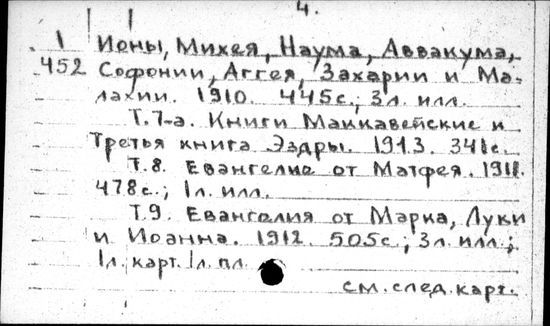 4.
1 Ионы, Михея, Наума, Аввакума,
452 Софонии, Аггея, Захарии и Ма-
лахии. 1910. 445с.; 3л. илл.
Т.7-а. Книги Маккавейские и
Третья книга Эздры. 1913. 341с.
Т.8. Евангелие от Матфея. 1911.
478с.; 1л. илл.
Т.9. Евангелия от Марка, Луки
и Иоанна. 1912. 505с.; 3л. илл.;
1л. карт. 1л. пл.
см. след. карт.